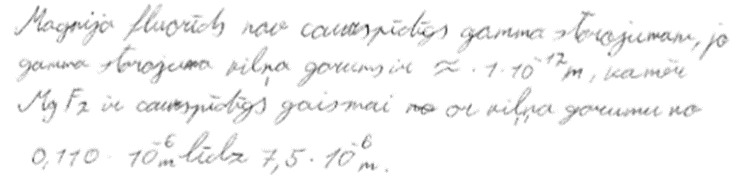 Magnija fluorīds nav caurspīdīgs gamma starojumam, jo
gamma starojuma viļņa garums ir ≈ · 1 · 10⁻¹² m, kamēr
MgF₂ ir caurspīdīgs gaismai ar viļņa garumu no
0,110 · 10⁻⁶ m līdz 7,5 · 10⁻⁶ m.